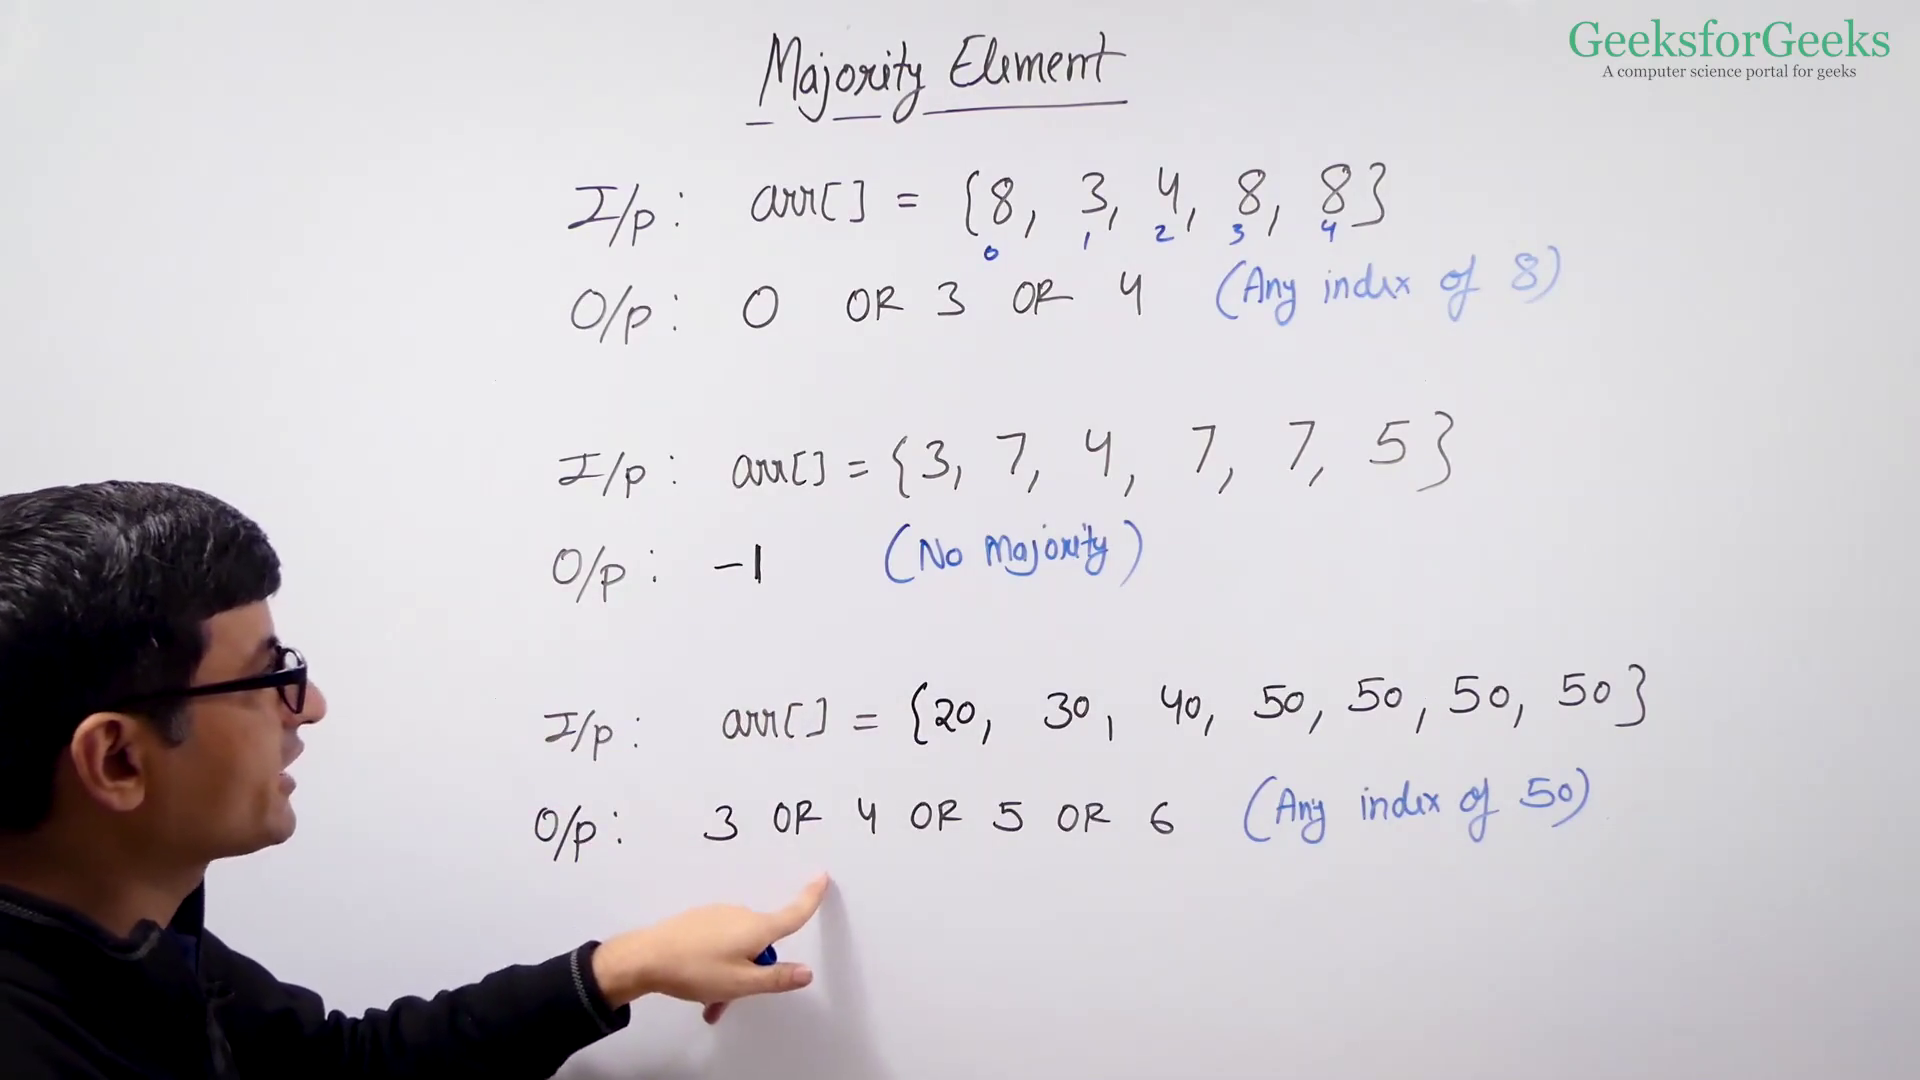 GeeksforGeeks
A computer science portal for geeks
Majority Element
I/p : arr[] = {8, 3, 4, 8, 8}
0 1 2 3 4
O/p : 0 OR 3 OR 4 (Any index of 8)
I/p : arr[] = {3, 7, 4, 7, 7, 5}
O/p : -1 (No Majority)
I/p : arr[] = {20, 30, 40, 50, 50, 50, 50}
O/p : 3 OR 4 OR 5 OR 6 (Any index of 50)